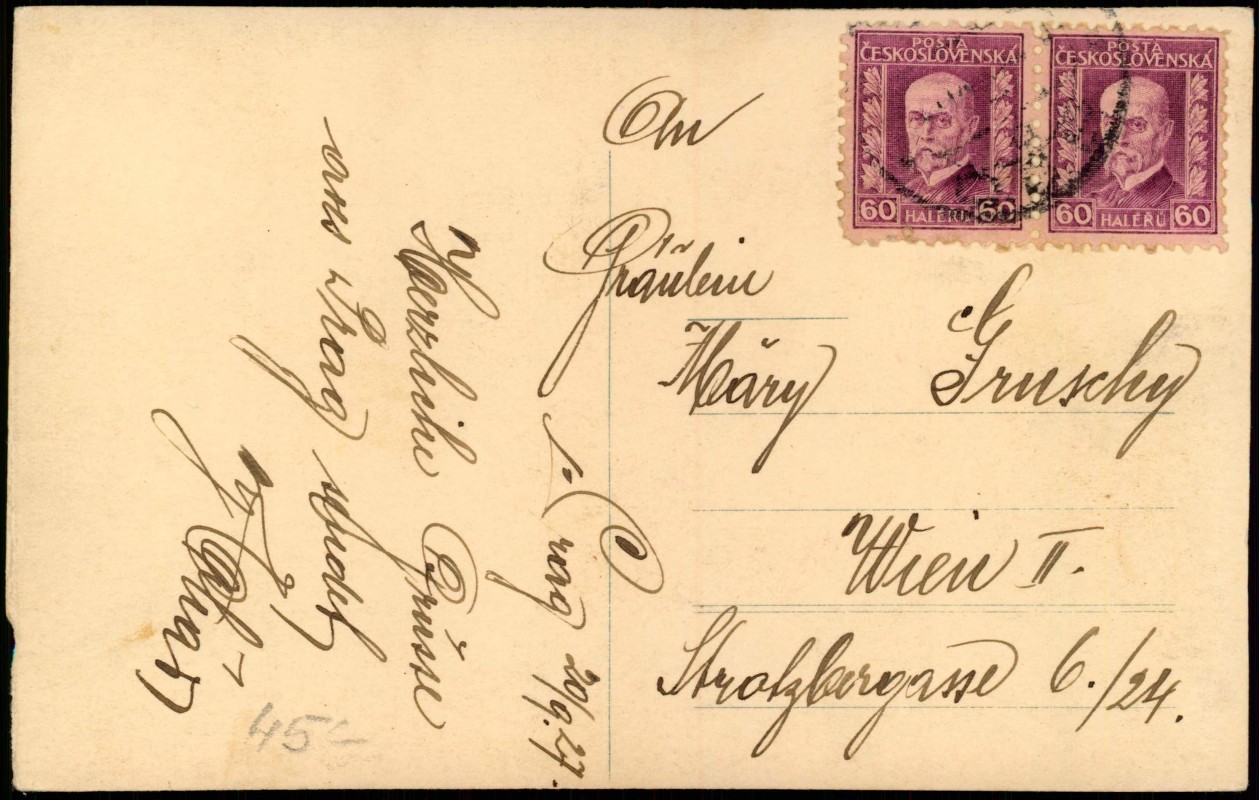 POSTA
ČESKOSLOVENSKÁ
60 HALÉŘŮ 60
POSTA
ČESKOSLOVENSKÁ
60 HALÉŘŮ 60
An
Fräulein
Märy Gruschy
Wien II.
Strotzbergasse 6./24.
Prag 20/9.27.
Herzliche Grüsse
aus Prag sendet
45-